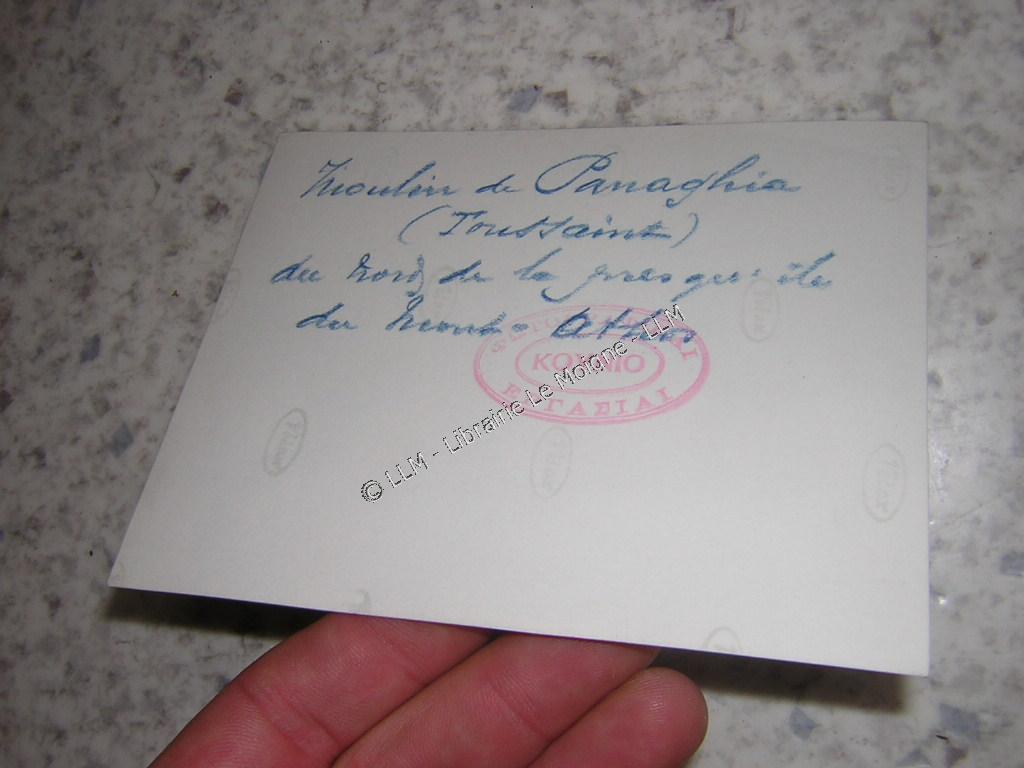 Moulin de Panaghia
(Toussaint)
du nord de la presqu'île
du Mont Athos
ΕΡΓΑΣΙΑΙ
© LLM - Librairie Le Moigne - LLM